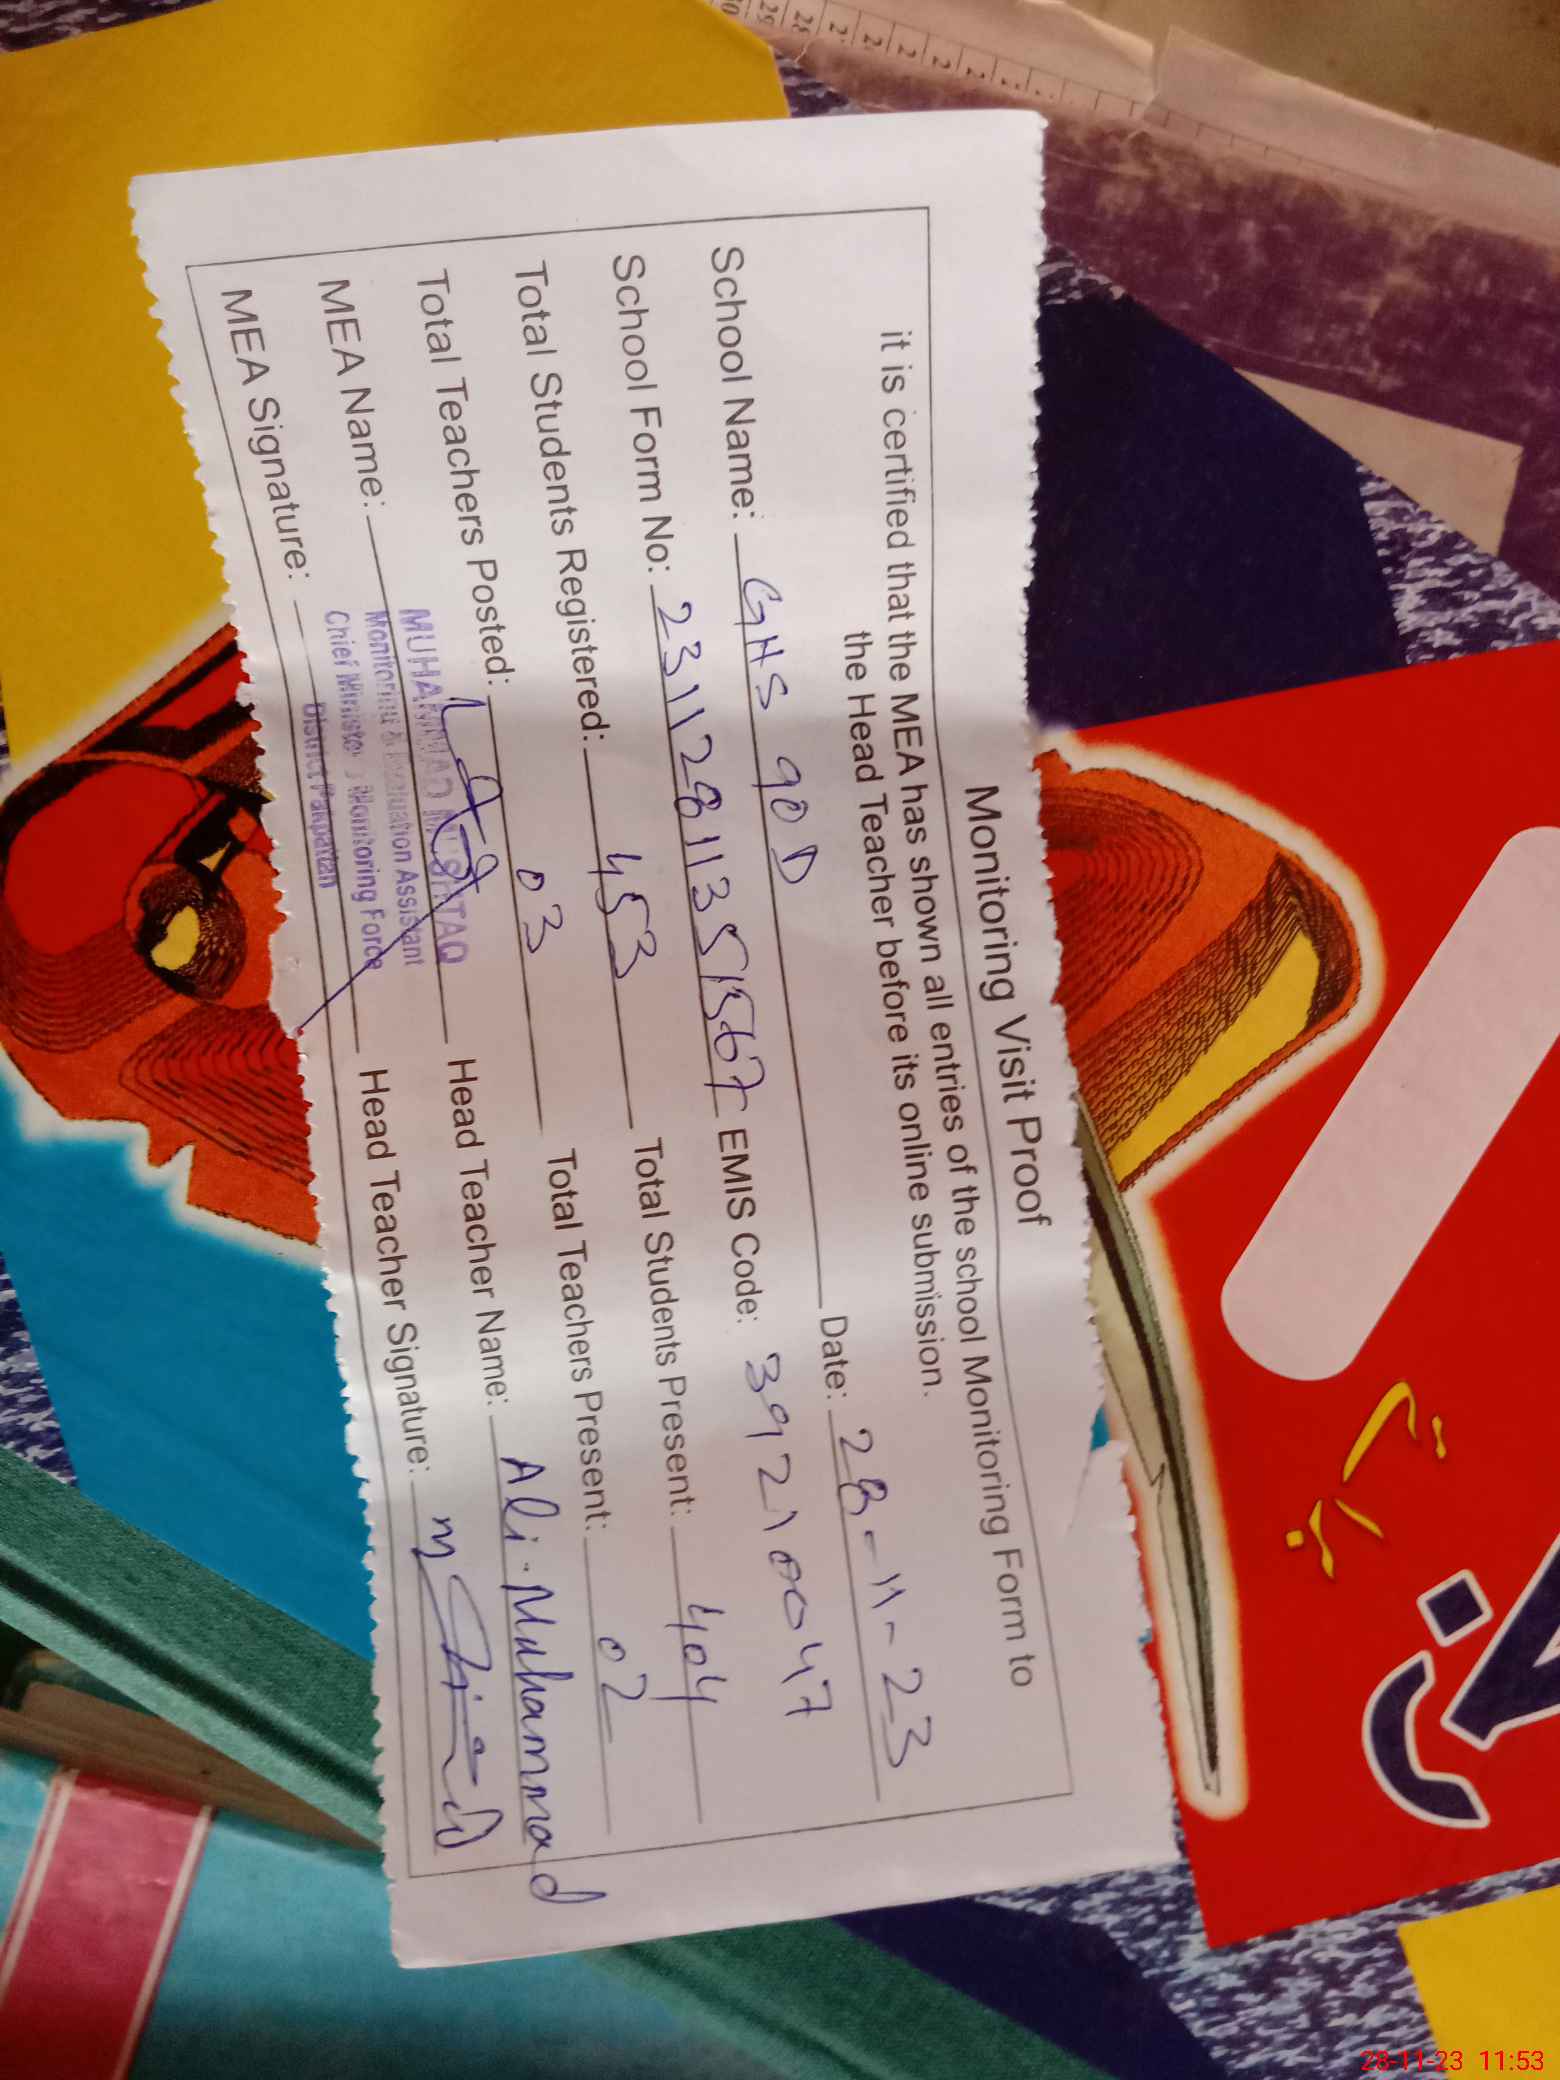 Monitoring Visit Proof
it is certified that the MEA has shown all entries of the school Monitoring Form to
the Head Teacher before its online submission.
School Name: GHS 90 D Date: 28-11-23
School Form No: EMIS Code: 39210047
Total Students Registered: 453 Total Students Present: 404
Total Teachers Posted: 03 Total Teachers Present: 02
MEA Name: MUHAMMAD MUSHTAQ Head Teacher Name: Ali Muhammad
Monitoring & Evaluation Assistant
MEA Signature: Head Teacher Signature:
Chief Minister's Monitoring Force
District Pakpattan
29
28
28-11-23 11:53